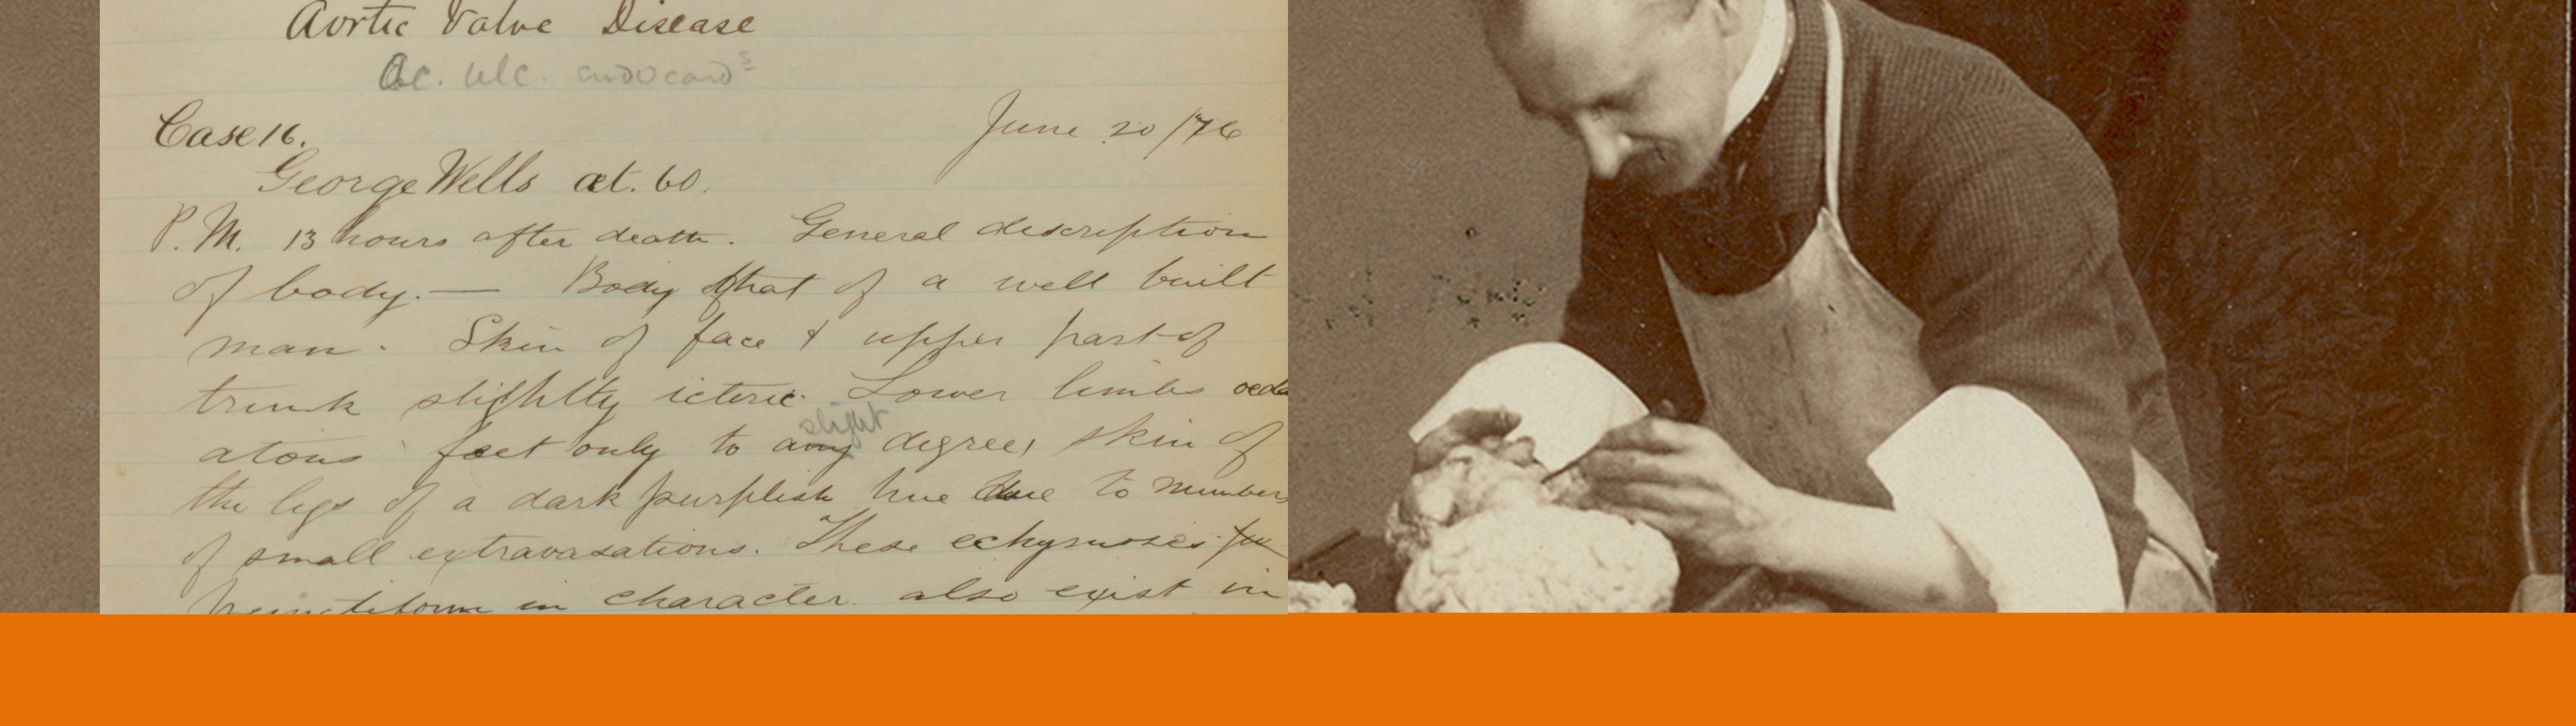 Aortic Valve Disease
Ac. ulc. endocards
Case 16. June 20/76
George Wells æt. 60.
P. M. 13 hours after death. General description
of body. — Body that of a well built
man. Skin of face & upper part of
trunk slightly icteric. Lower limbs oede
atous feet only to any slight degree, skin of
the legs of a dark purplish hue due to numbers
of small extravasations. These echymoses
punctiform in character also exist in